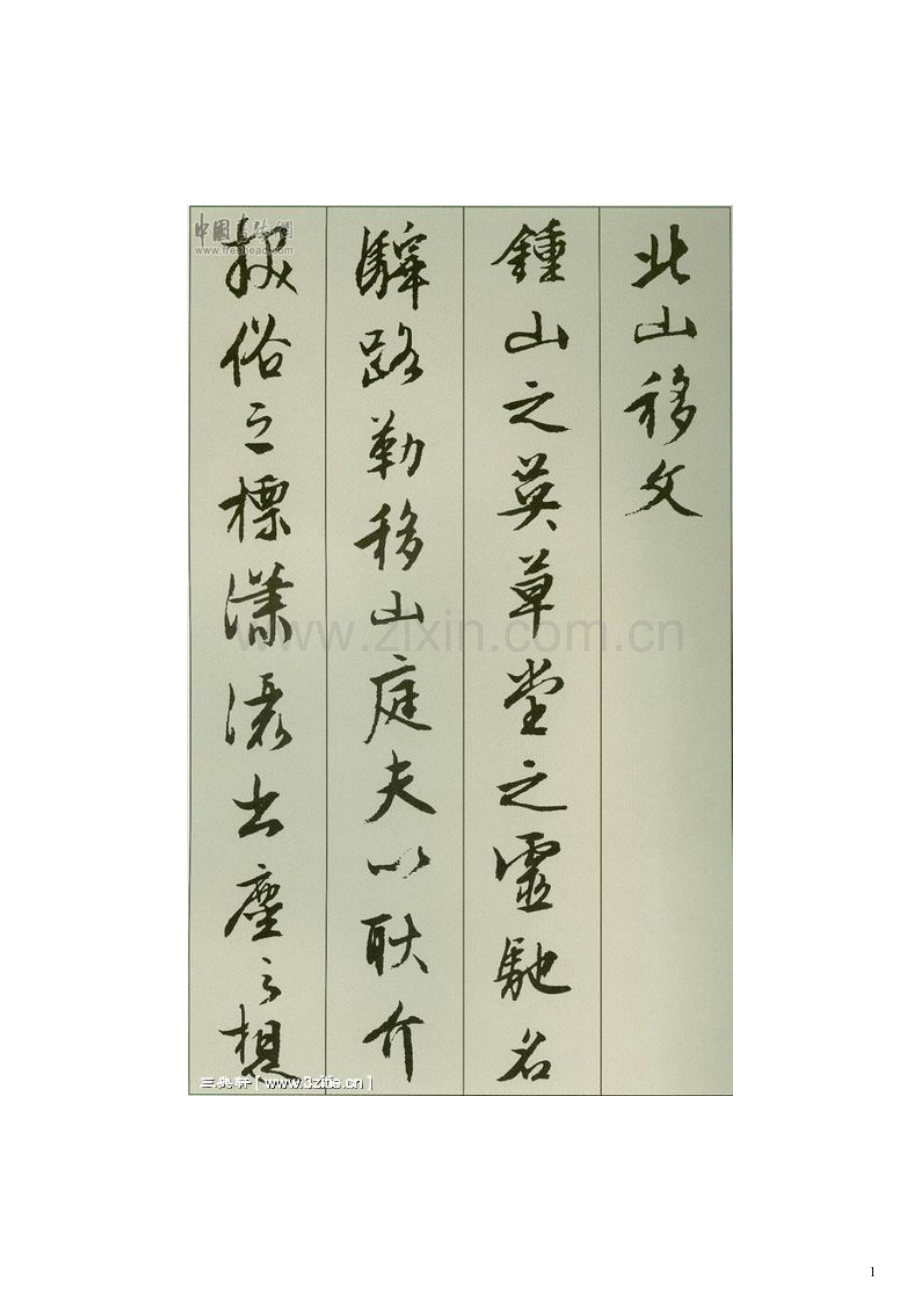 北山移文
鍾山之英草堂之靈馳名
驛路勒移山庭夫以耿介
拔俗之標瀟灑出塵之想
中國書法網
www.freehead.com
www.zixin.com.cn
1